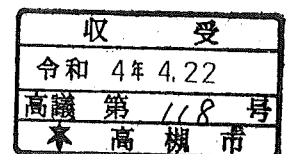 収 受
令和 4年 4.22
高議 第 118 号
★ 高槻市